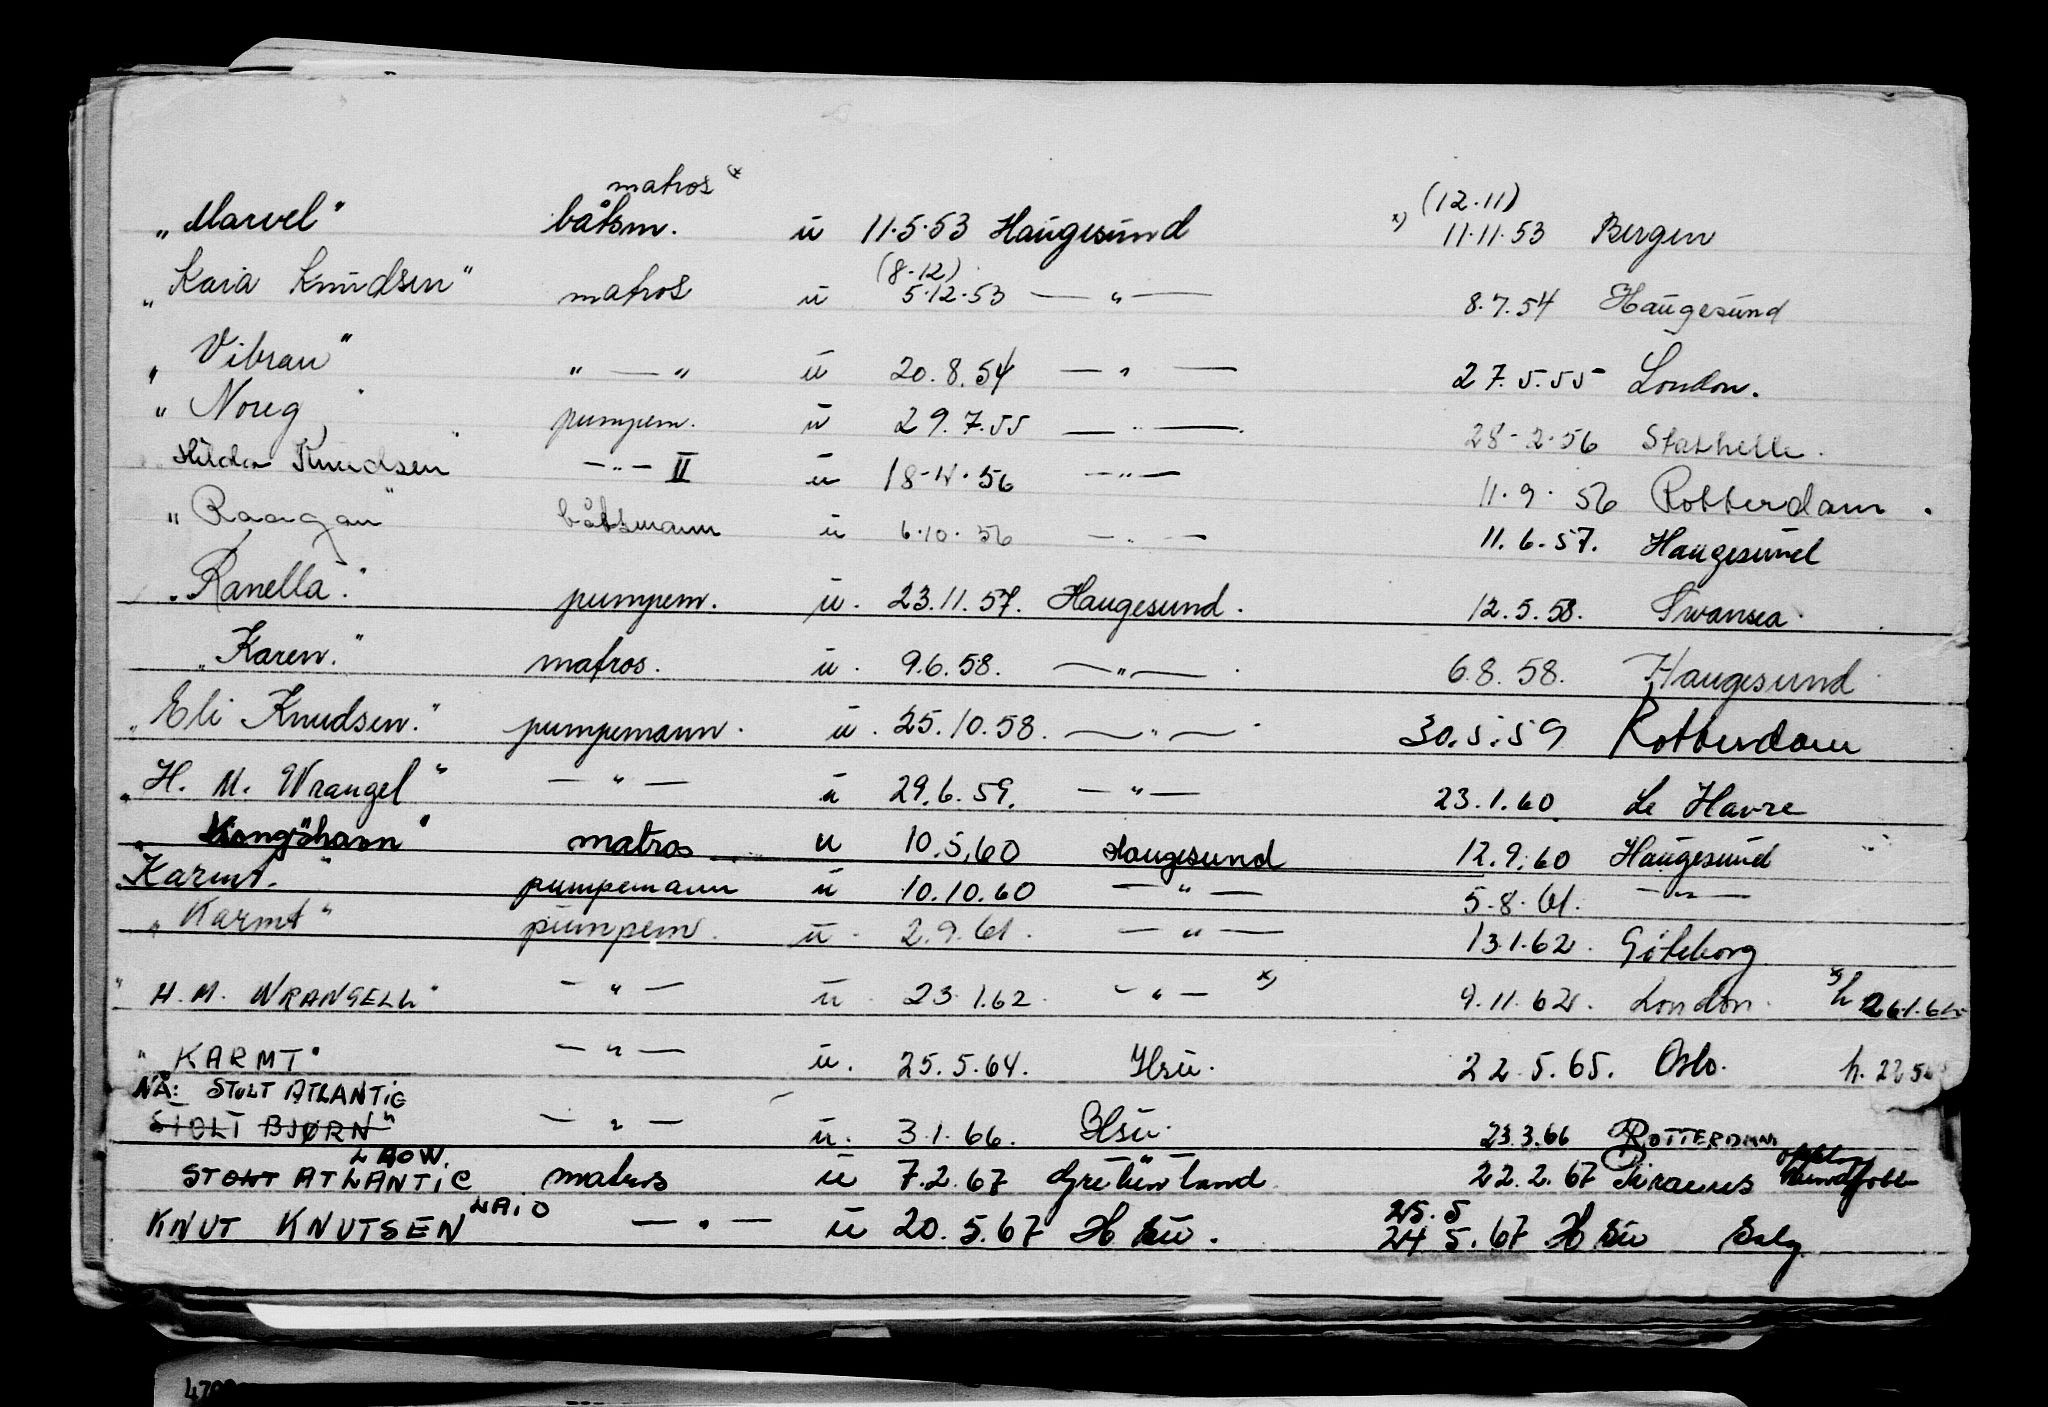 matros x)
"Marvel" båtsm. u 11.5.53 Haugesund x) (12.11) 11.11.53 Bergen
"Kaia Knudsen" matros u (8-12) 5.12.53 — " — 8.7.54 Haugesund
"Vibran" " — " u 20.8.54 — " — 27.5.55 London.
"Noreg" pumpem. u 29.7.55 — " — 28-2-56 Stathelle.
Hilda Knudsen" — " — II u 18-4-56 — " — 11.9.56 Rotterdam.
"Raagan" båtsmann u 6.10.56 — " — 11.6.57. Haugesund
"Ranella". pumpem. u. 23.11.57. Haugesund. 12.5.58. Swansea.
"Karen." matros. u. 9.6.58. — " — 6.8.58. Haugesund
"Eli Knudsen." pumpemann. u. 25.10.58. — " — 30.5.59 Rotterdam
"H. M. Wrangel" — " — u 29.6.59. — " — 23.1.60. Le Havre
"Kongshavn" matros u 10.5.60 Haugesund 12.9.60 Haugesund
"Karmt." pumpemann u 10.10.60 — " — 5.8.61. — " —
"Karmt" pumpem. u. 2.9.61. — " — 13.1.62. Göteborg
"H. M. WRANGELL" — " — u. 23.1.62. — " — x) 9.11.62. London. x) h 26.1.62
"KARMT" — " — u. 25.5.64. Hsu. 22.5.65. Oslo. h. 22.5
NÅ: STOLT ATLANTIC
STOLT BJØRN" — " — u. 3.1.66. Hsu. 23.3.66 ROTTERDAM
LAOW.
STOLT ATLANTIC matros u 7.2.67 22.2.67 Piraeus
KNUT KNUTSEN LAIO — " — u 20.5.67 Hsu. 25.5 24 5.67 Hsu Salg